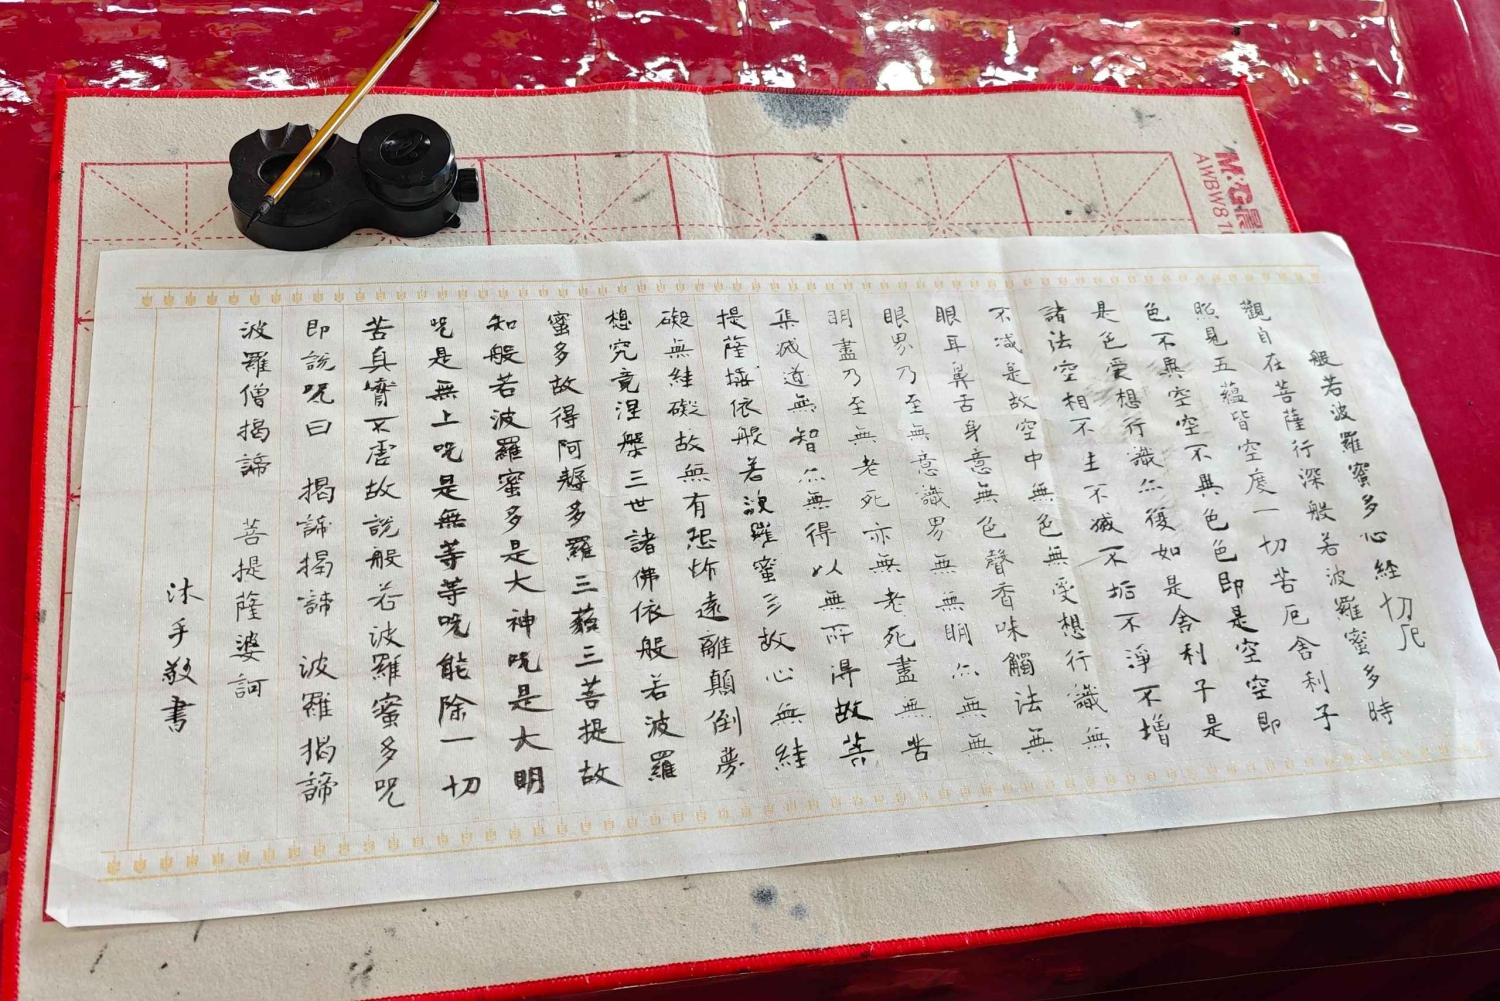 般若波羅蜜多心経切厄
觀自在菩薩行深般若波羅蜜多時
照見五蘊皆空度一切苦厄舍利子
色不異空空不異色色即是空空即
是色受想行識亦復如是舍利子是
諸法空相不生不滅不垢不淨不增
不減是故空中無色無受想行識無
眼耳鼻舌身意無色聲香味觸法無
眼界乃至無意識界無無明亦無無
明盡乃至無老死亦無老死盡無苦
集滅道無智亦無得以無所得故菩
提薩埵依般若波羅蜜多故心無絓
礙無絓礙故無有恐怖遠離顛倒夢
想究竟涅槃三世諸佛依般若波羅
蜜多故得阿耨多羅三藐三菩提故
知般若波羅蜜多是大神咒是大明
咒是無上咒是無等等咒能除一切
苦真實不虛故說般若波羅蜜多咒
即說咒曰 揭諦揭諦 波羅揭諦
波羅僧揭諦 菩提薩婆訶
沐手敬書
M&G晨
AWBW81